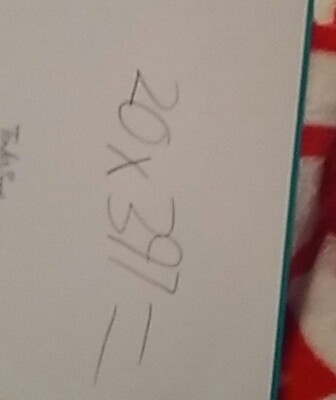 20 x 397 =